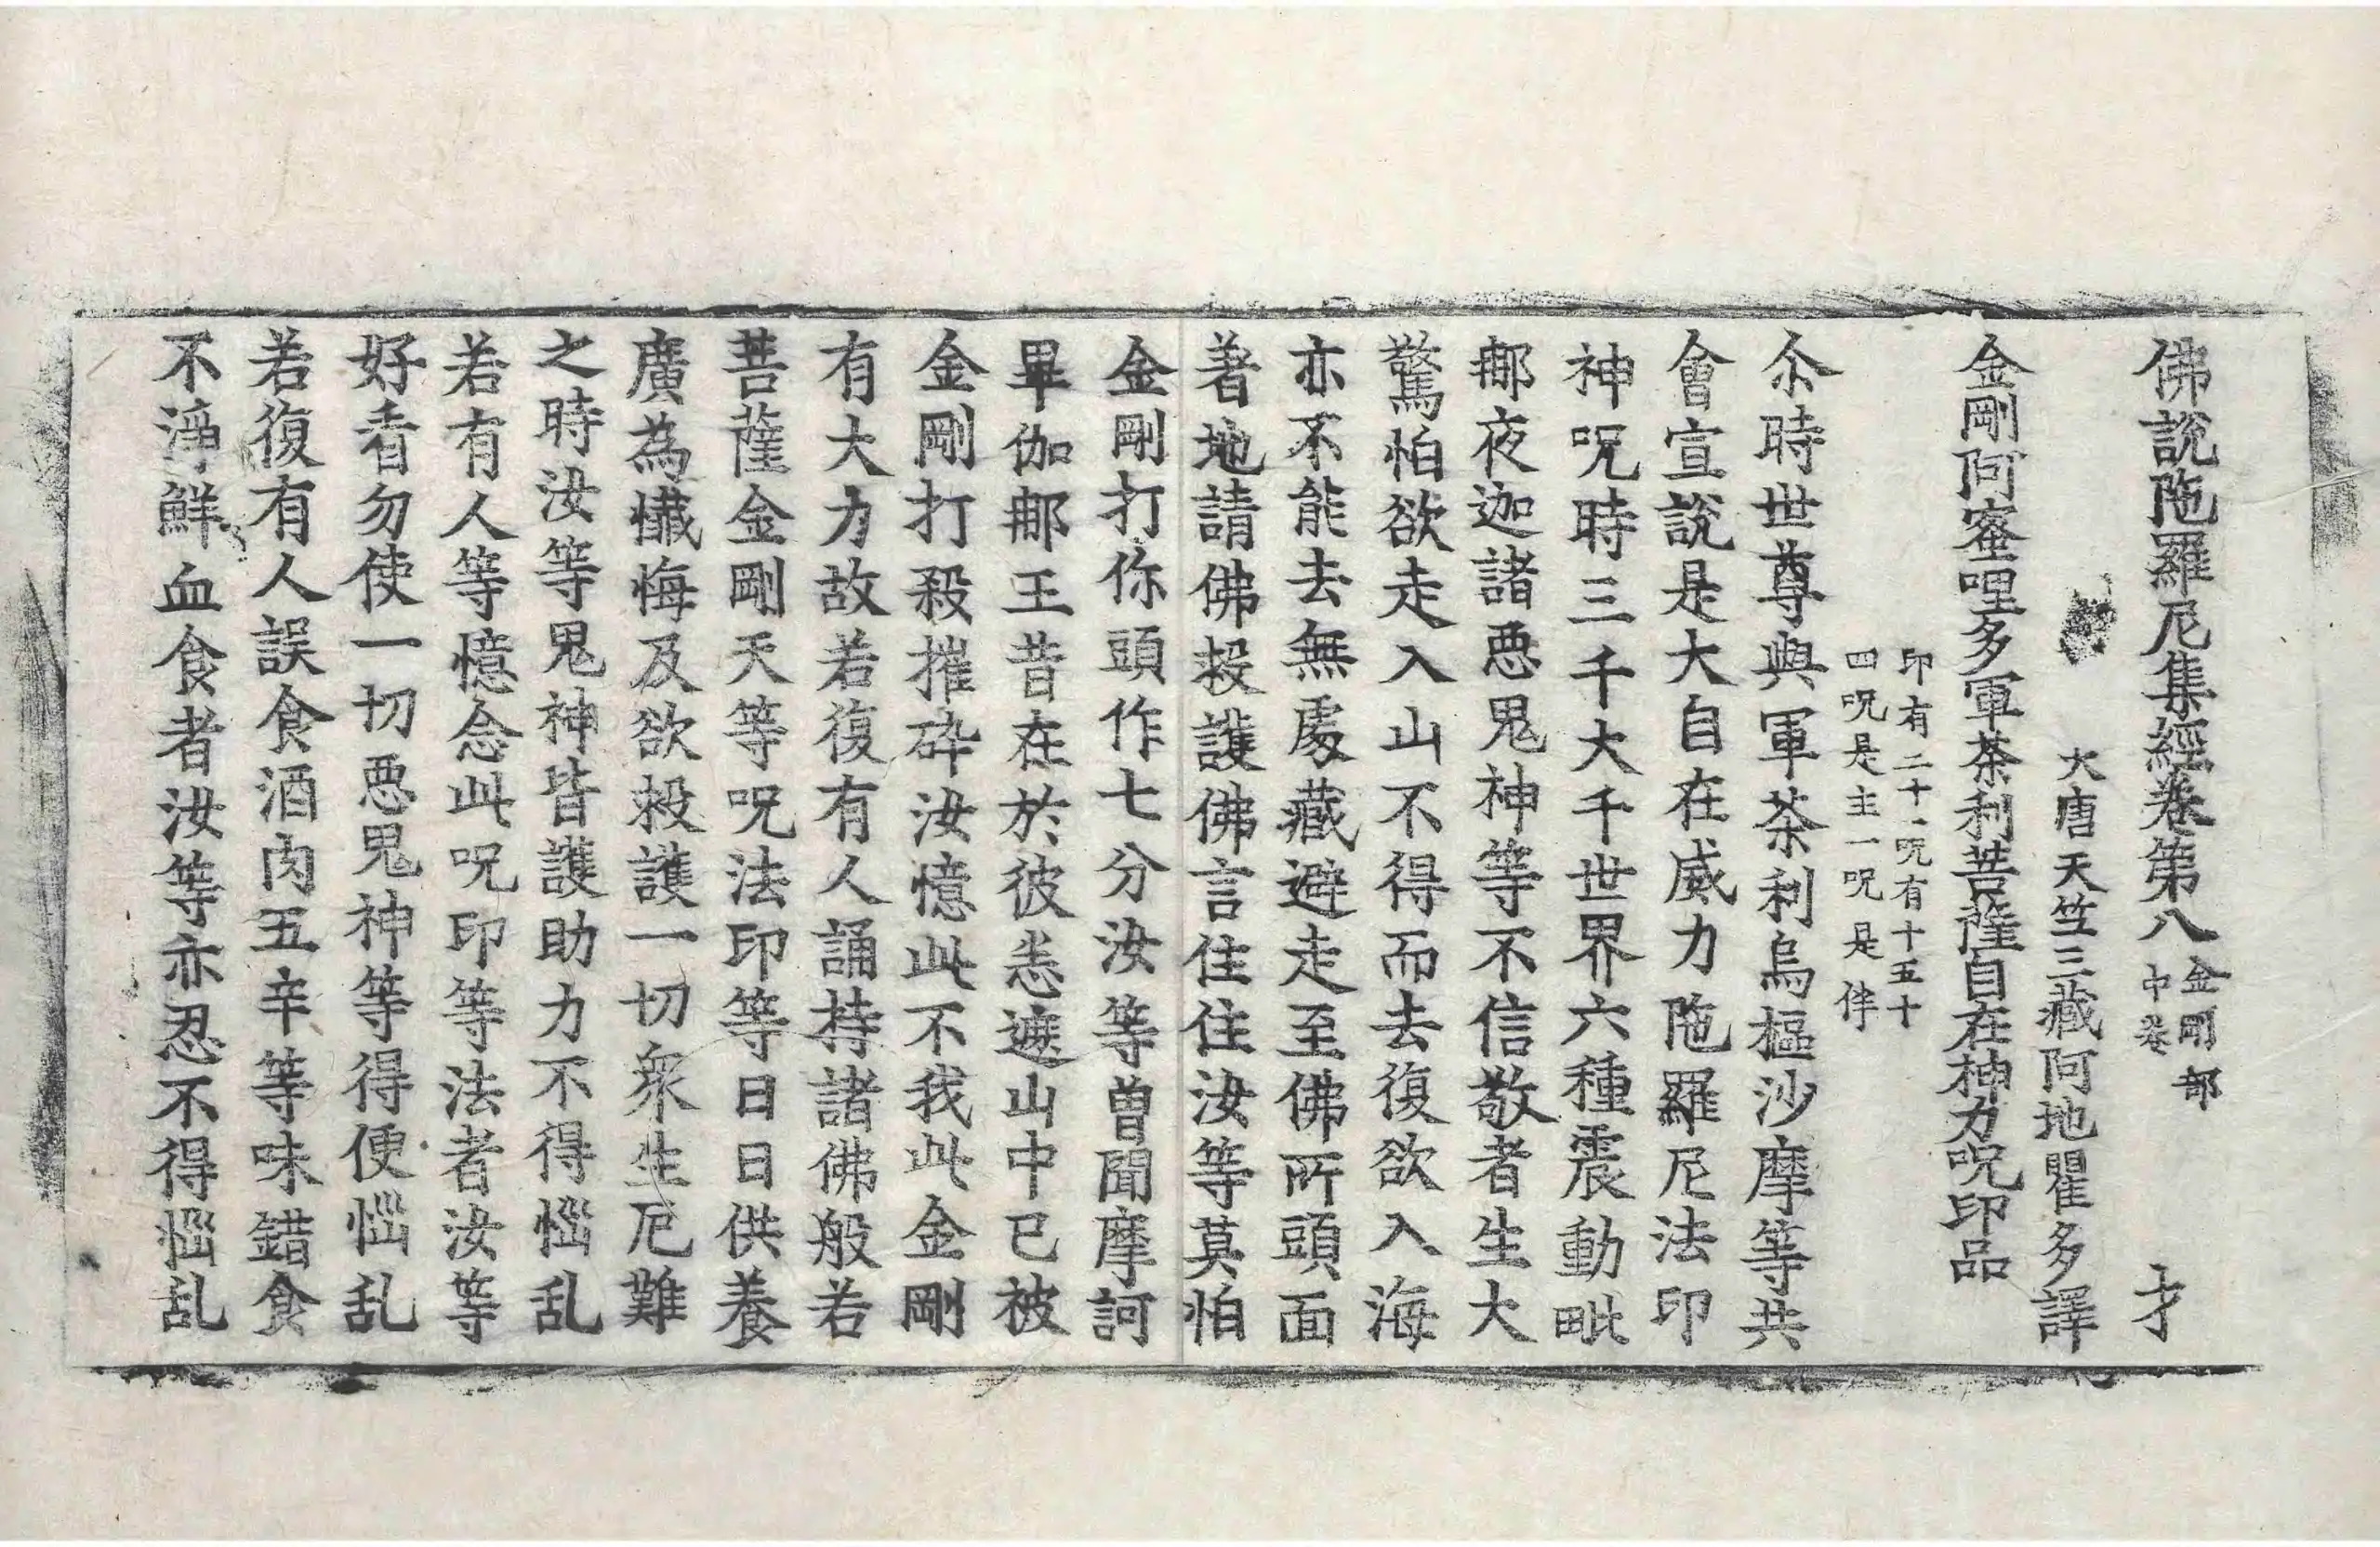 佛說陁羅尼集經卷第八 金剛部中卷 才
大唐天竺三藏阿地瞿多譯
金剛阿蜜哩多軍荼利菩薩自在神力呪印品
印有二十一呪有十五十
四呪是主一呪是伴
尒時世尊與軍荼利烏樞沙摩等共
會宣說是大自在威力陁羅尼法印
神呪時三千大千世界六種震動毗
那夜迦諸惡鬼神等不信敬者生大
驚怕欲走入山不得而去復欲入海
亦不能去無處藏避走至佛所頭面
著地請佛救護佛言住住汝等莫怕
金剛打你頭作七分汝等曾聞摩訶
畢伽那王昔在於彼恙遮山中已被
金剛打殺摧碎汝憶此不我此金剛
有大力故若復有人誦持諸佛般若
菩薩金剛天等呪法印等日日供養
廣為懺悔及欲救護一切衆生厄難
之時汝等鬼神皆護助力不得惱乱
若有人等憶念此呪印等法者汝等
好看勿使一切惡鬼神等得便惱乱
若復有人誤食酒肉五辛等味錯食
不淨鮮血食者汝等亦忍不得惱乱